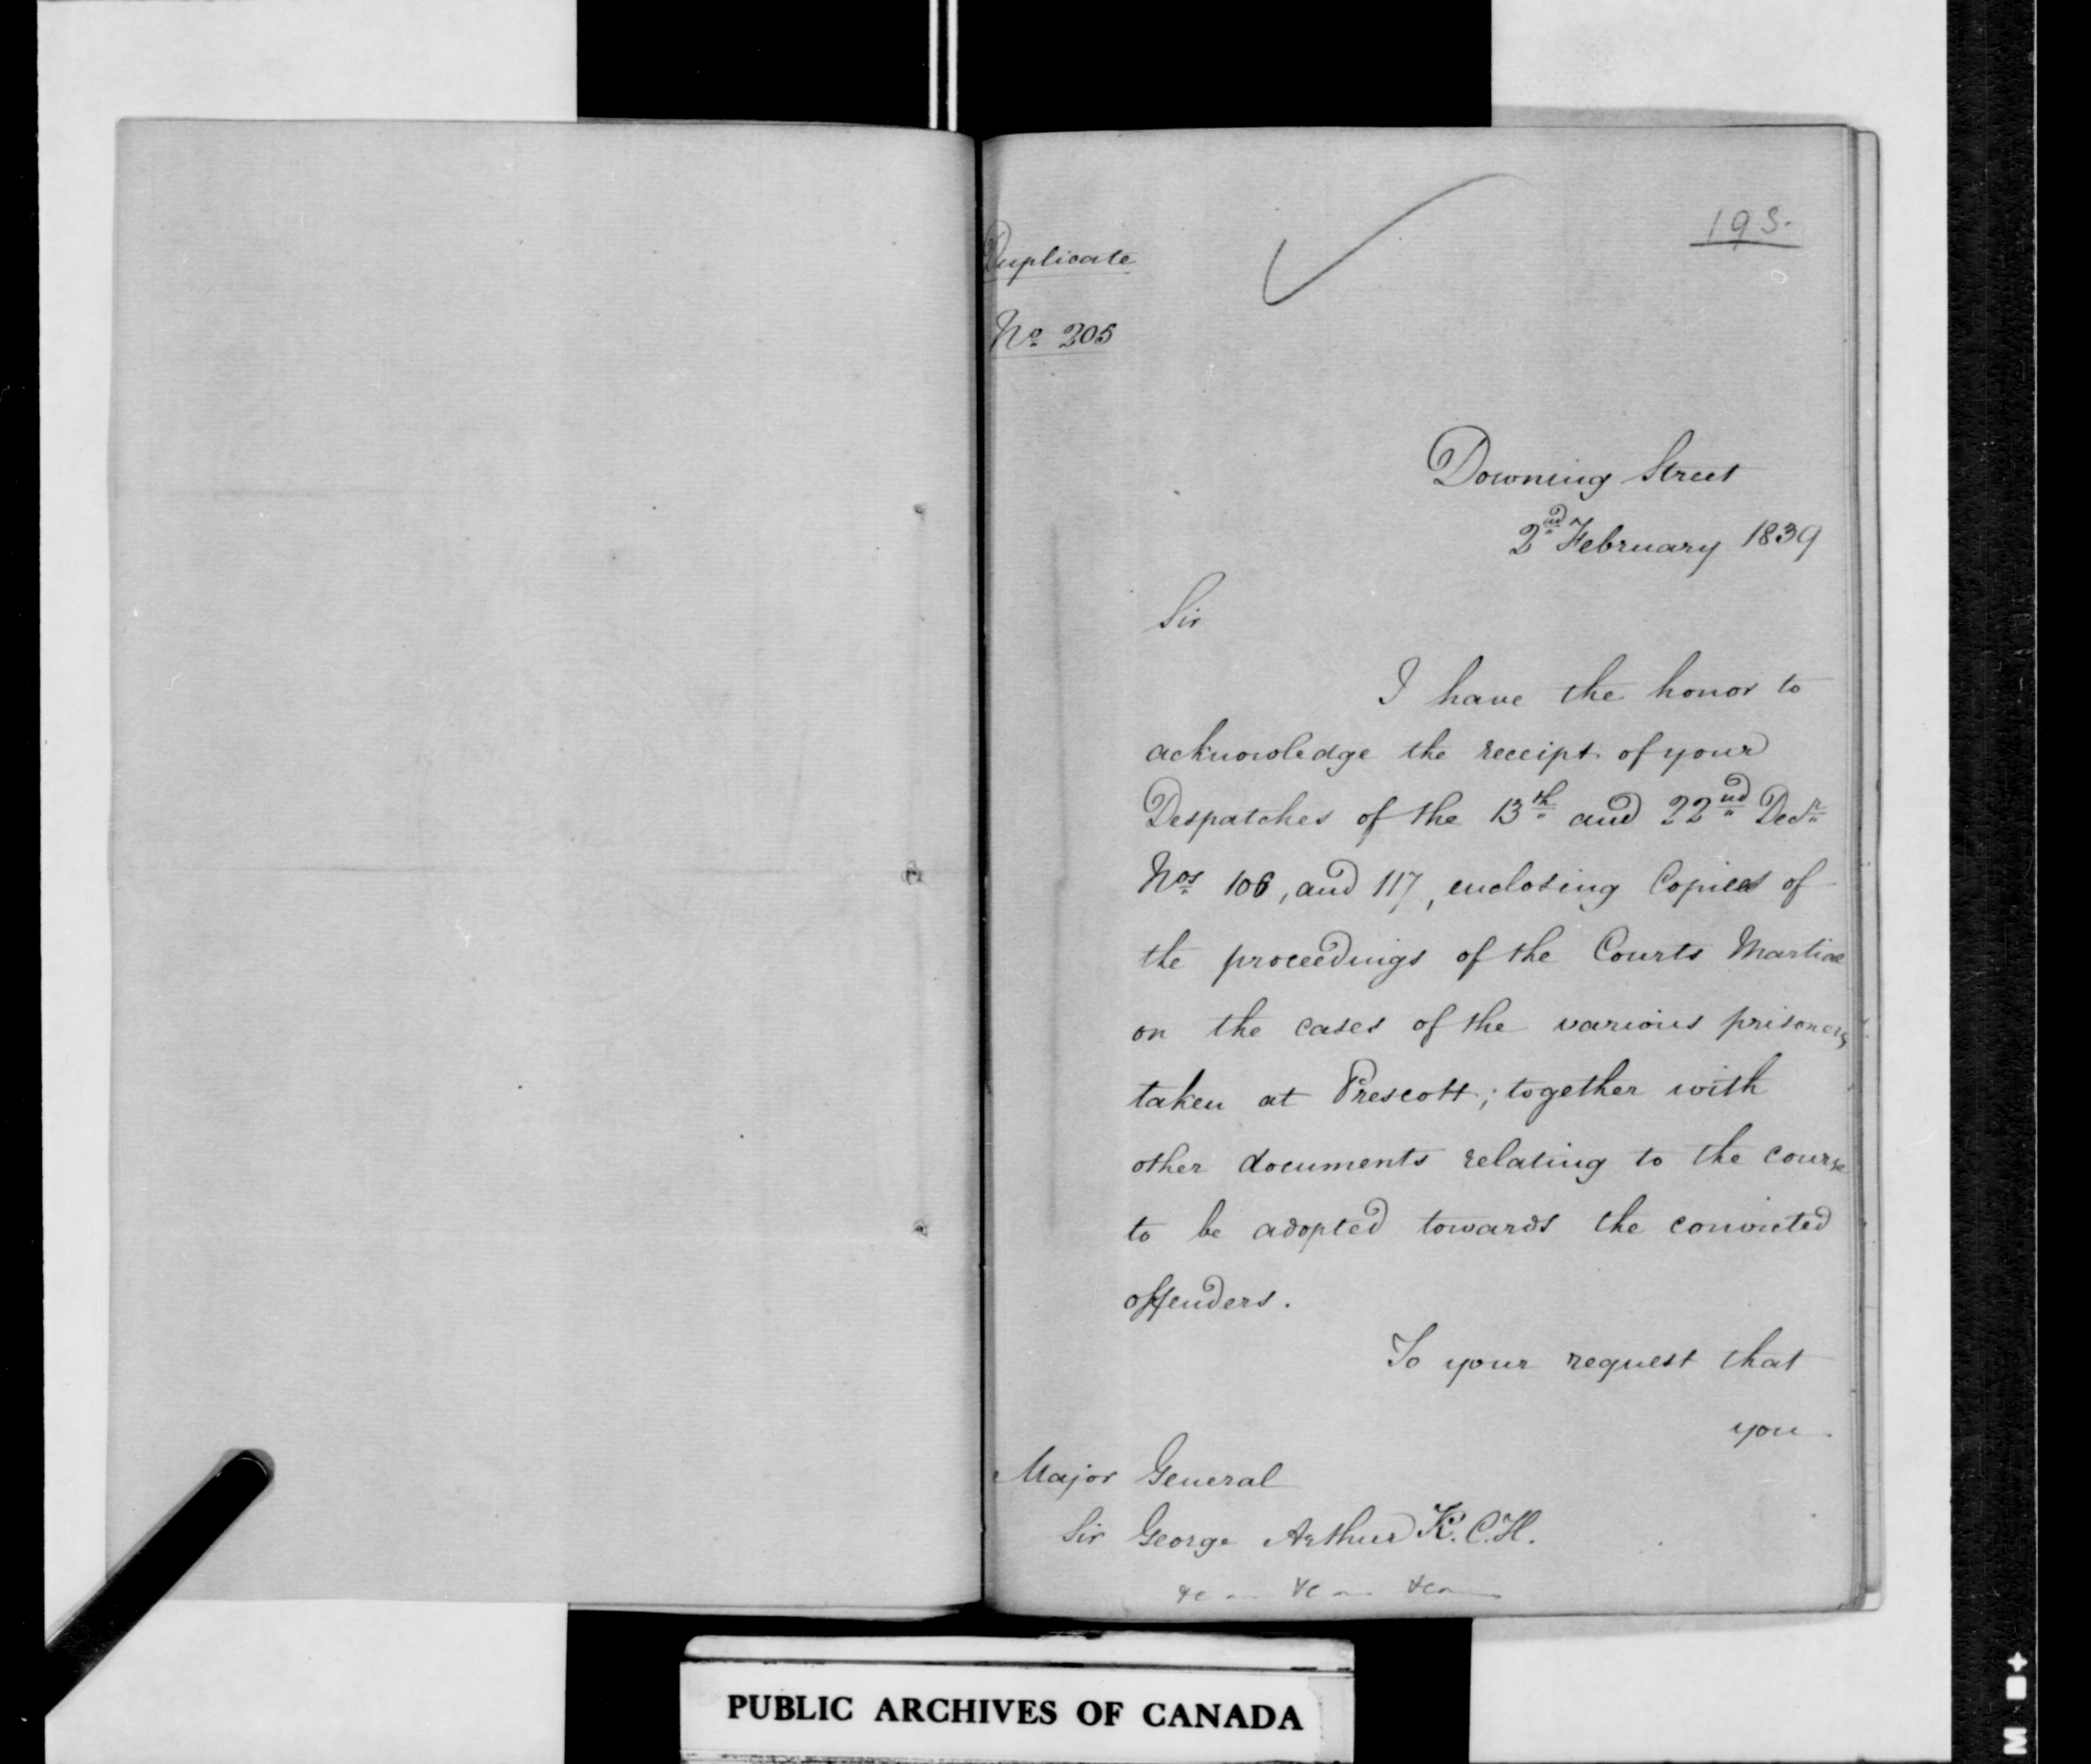 193.
Duplicate
No. 205
Downing Street
2nd February 1839
Sir
I have the honor to
acknowledge the receipt of your
Despatches of the 13th and 22nd Decr
Nos 106, and 117, enclosing Copies of
the proceedings of the Courts Martial
on the cases of the various prisoners
taken at Prescott; together with
other documents relating to the course
to be adopted towards the convicted
offenders.
To your request that
you
Major General
Sir George Arthur K.C.H.
&c &c &c
PUBLIC ARCHIVES OF CANADA